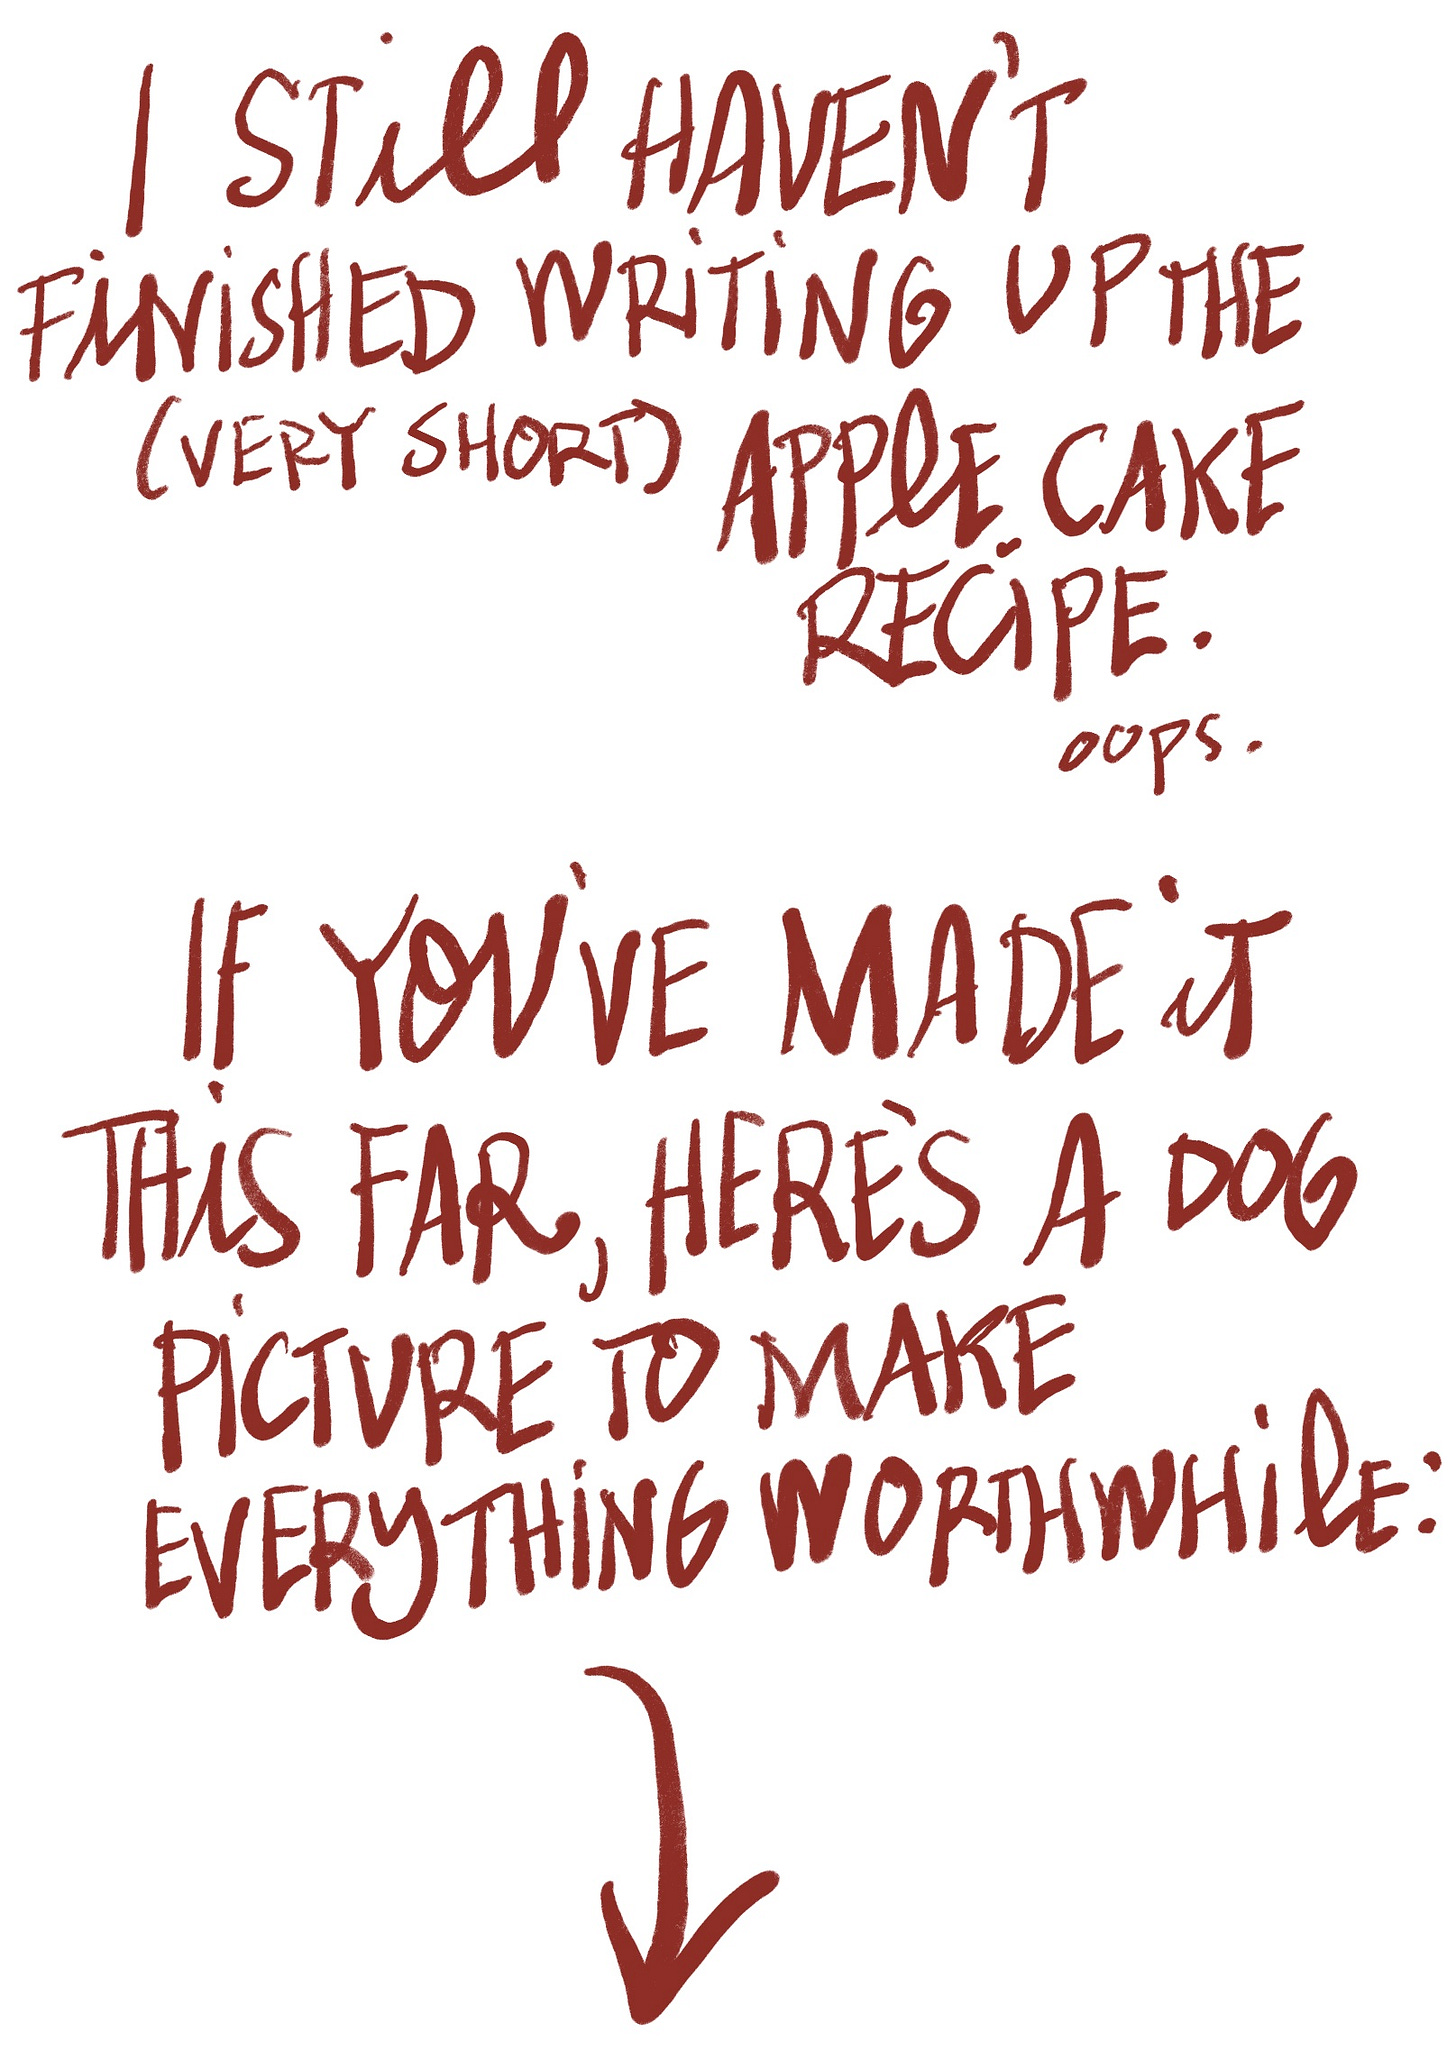 I STill HAVEN'T
FiNiSHED WRiTiNG UP THE
(VERY SHORT) APPlE CAKE
RECiPE.
oops.
IF YOU'VE MADE iT
THiS FAR, HERE'S A DOG
PiCTURE TO MAKE
EVERYTHiNG WORTHWHilE: